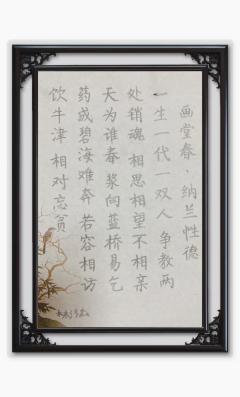 画堂春·纳兰性德
一生一代一双人 争教两
处销魂 相思相望不相亲
天为谁春 浆向蓝桥易乞
药成碧海难奔 若容相访
饮牛津 相对忘贫